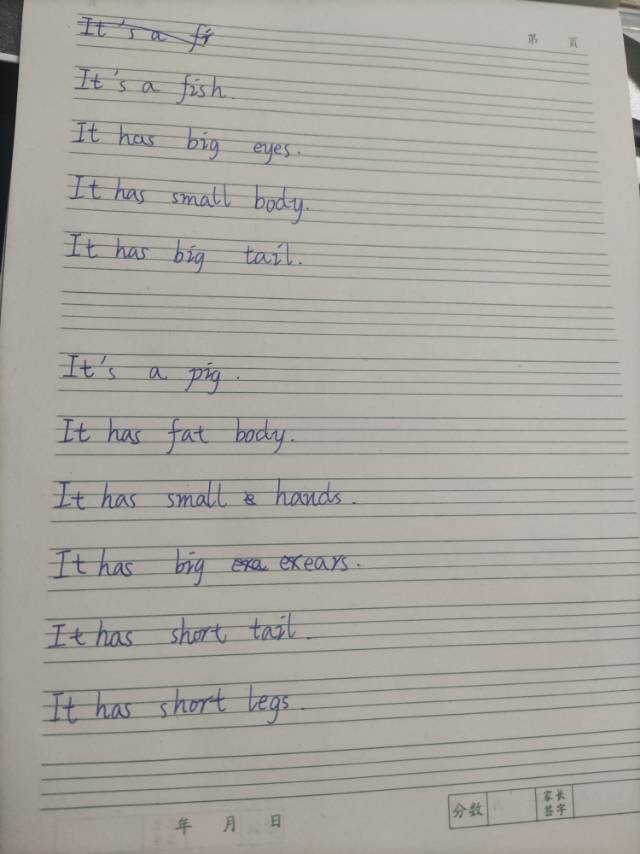 第 页
It's a fish.
It has big eyes.
It has small body.
It has big tail.
It's a pig.
It has fat body.
It has small hands.
It has big ears.
It has short tail.
It has short legs.
年 月 日
分数
家长
签字